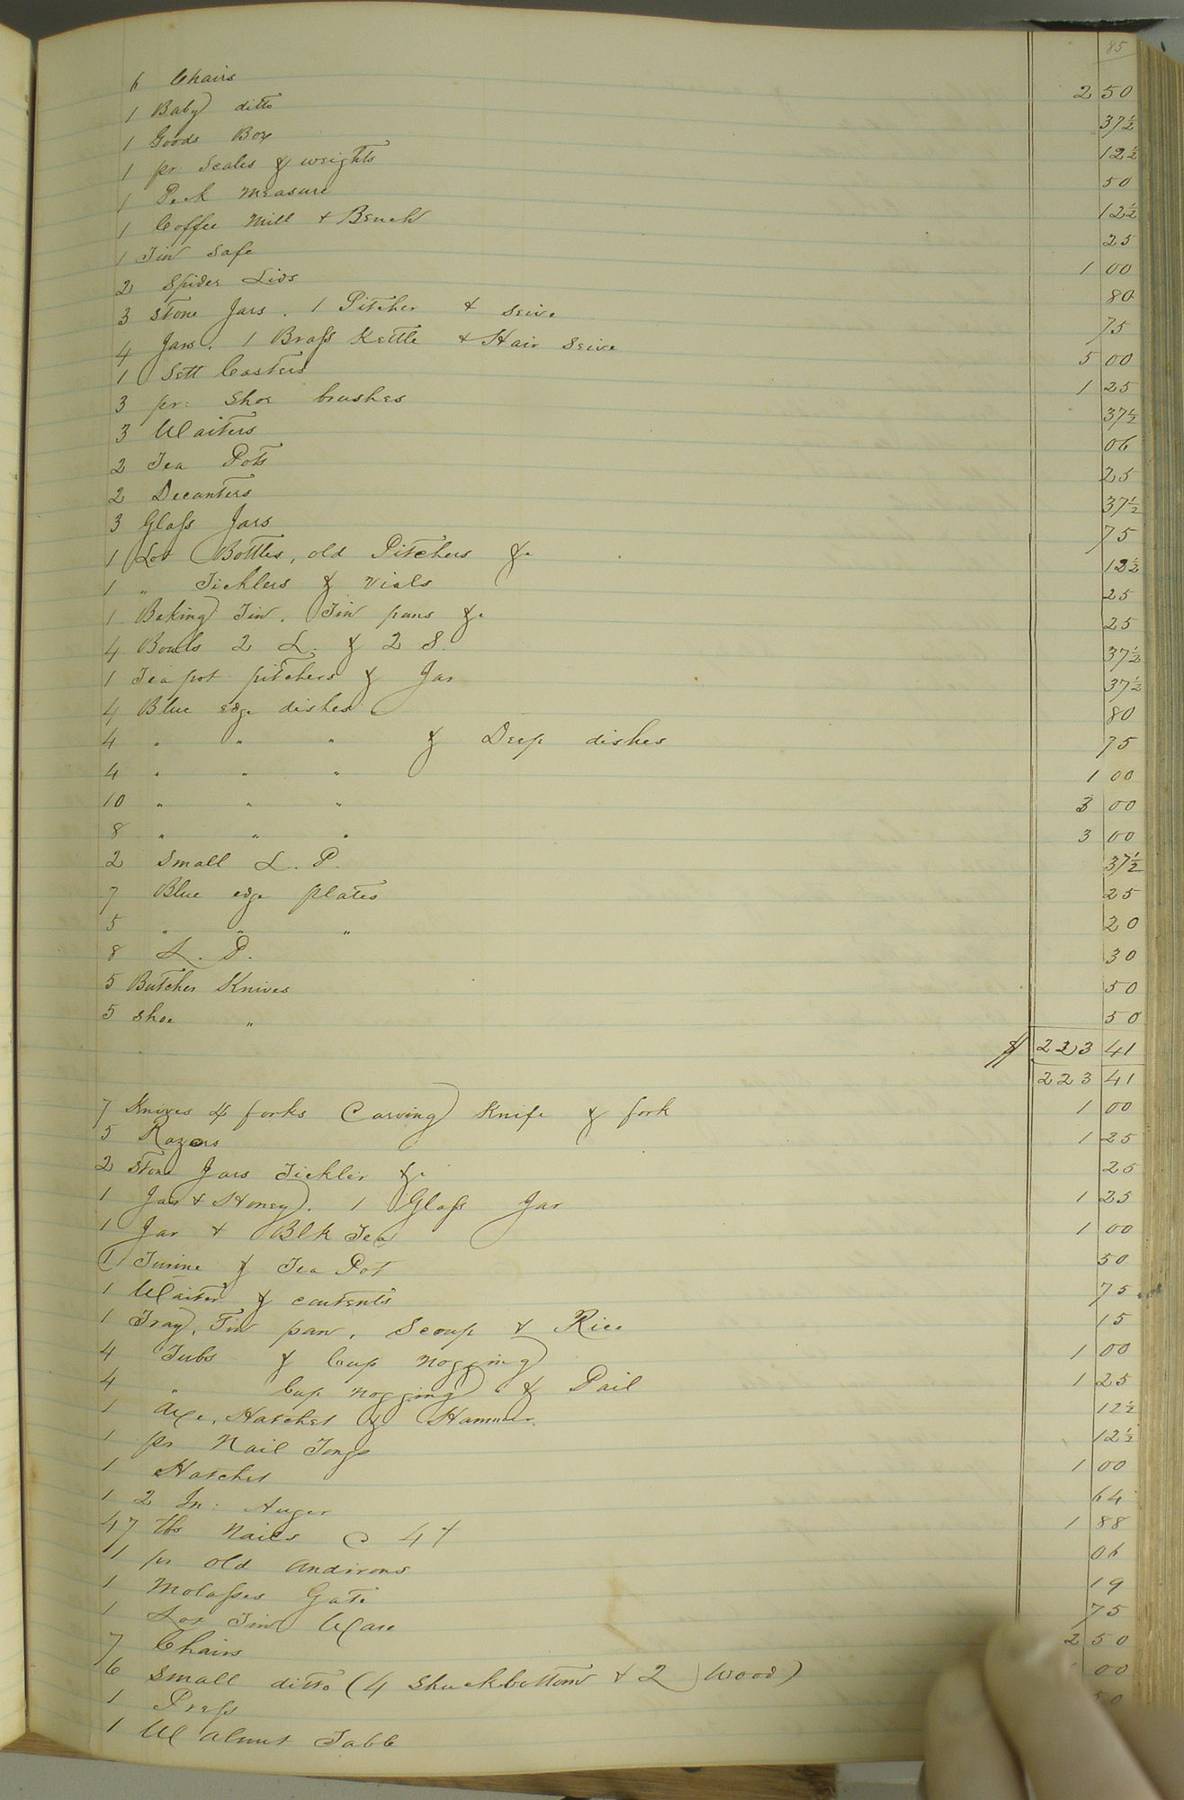 85
6 Chairs 2 50
1 Baby ditto 37½
1 Goods Box 12½
1 pr Scales & weights 50
1 Peck Measure 12½
1 Coffee Mill + Bench 25
1 Tin Safe 1 00
2 Spider Lids 80
3 Stone Jars. 1 Pitcher + Seive 75
4 Jars. 1 Brass Kettle + Hair Seive 5 00
1 Sett Casters 1 25
3 pr: Shoe brushes 37½
3 Waiters 06
2 Tea Pots 25
2 Decanters 37½
3 Glass Jars 75
1 Lot Bottles, old Pitchers &c 12½
1 " Ticklers & Vials 25
1 Baking Tin. Tin pans &c 25
4 Bowls 2 L. & 2 S. 37½
1 Tea pot pitchers & Jar 37½
4 Blue edge dishes 80
4 " " " & Deep dishes 75
4 " " " 1 00
10 " " " 3 00
8 " " " 3 00
2 Small L. P. 37½
7 Blue edge plates 25
5 " " " 20
8 L. P. 30
5 Butcher Knives 50
5 Shoe " 50
$ 223 41
223 41
7 Knives 4 forks Carving Knife & fork 1 00
5 Razors 1 25
2 Stone Jars Tickler &c 25
1 Jar + Honey. 1 Glass Jar 1 25
1 Jar + Blk Tea 1 00
1 Turine & Tea Pot 50
1 Waiter & contents 75
1 Tray, Tin pan, Scoup + Rice 15
4 Tubs & Cup nogging 1 00
4 " Cup nogging & Pail 1 25
1 Axe, Hatchet & Hammer 12½
1 pr Nail Tongs 12½
1 Hatchet 1 00
1 2 In: Auger 64
47 lbs Nails @ 4 1 88
1 pr old andirons 06
1 Molasses Gate 19
1 Lot Tin Ware 75
7 Chairs 2 50
6 Small ditto (4 Shuckbottom + 2 Wood) 00
1 Press 50
1 Walnut Table